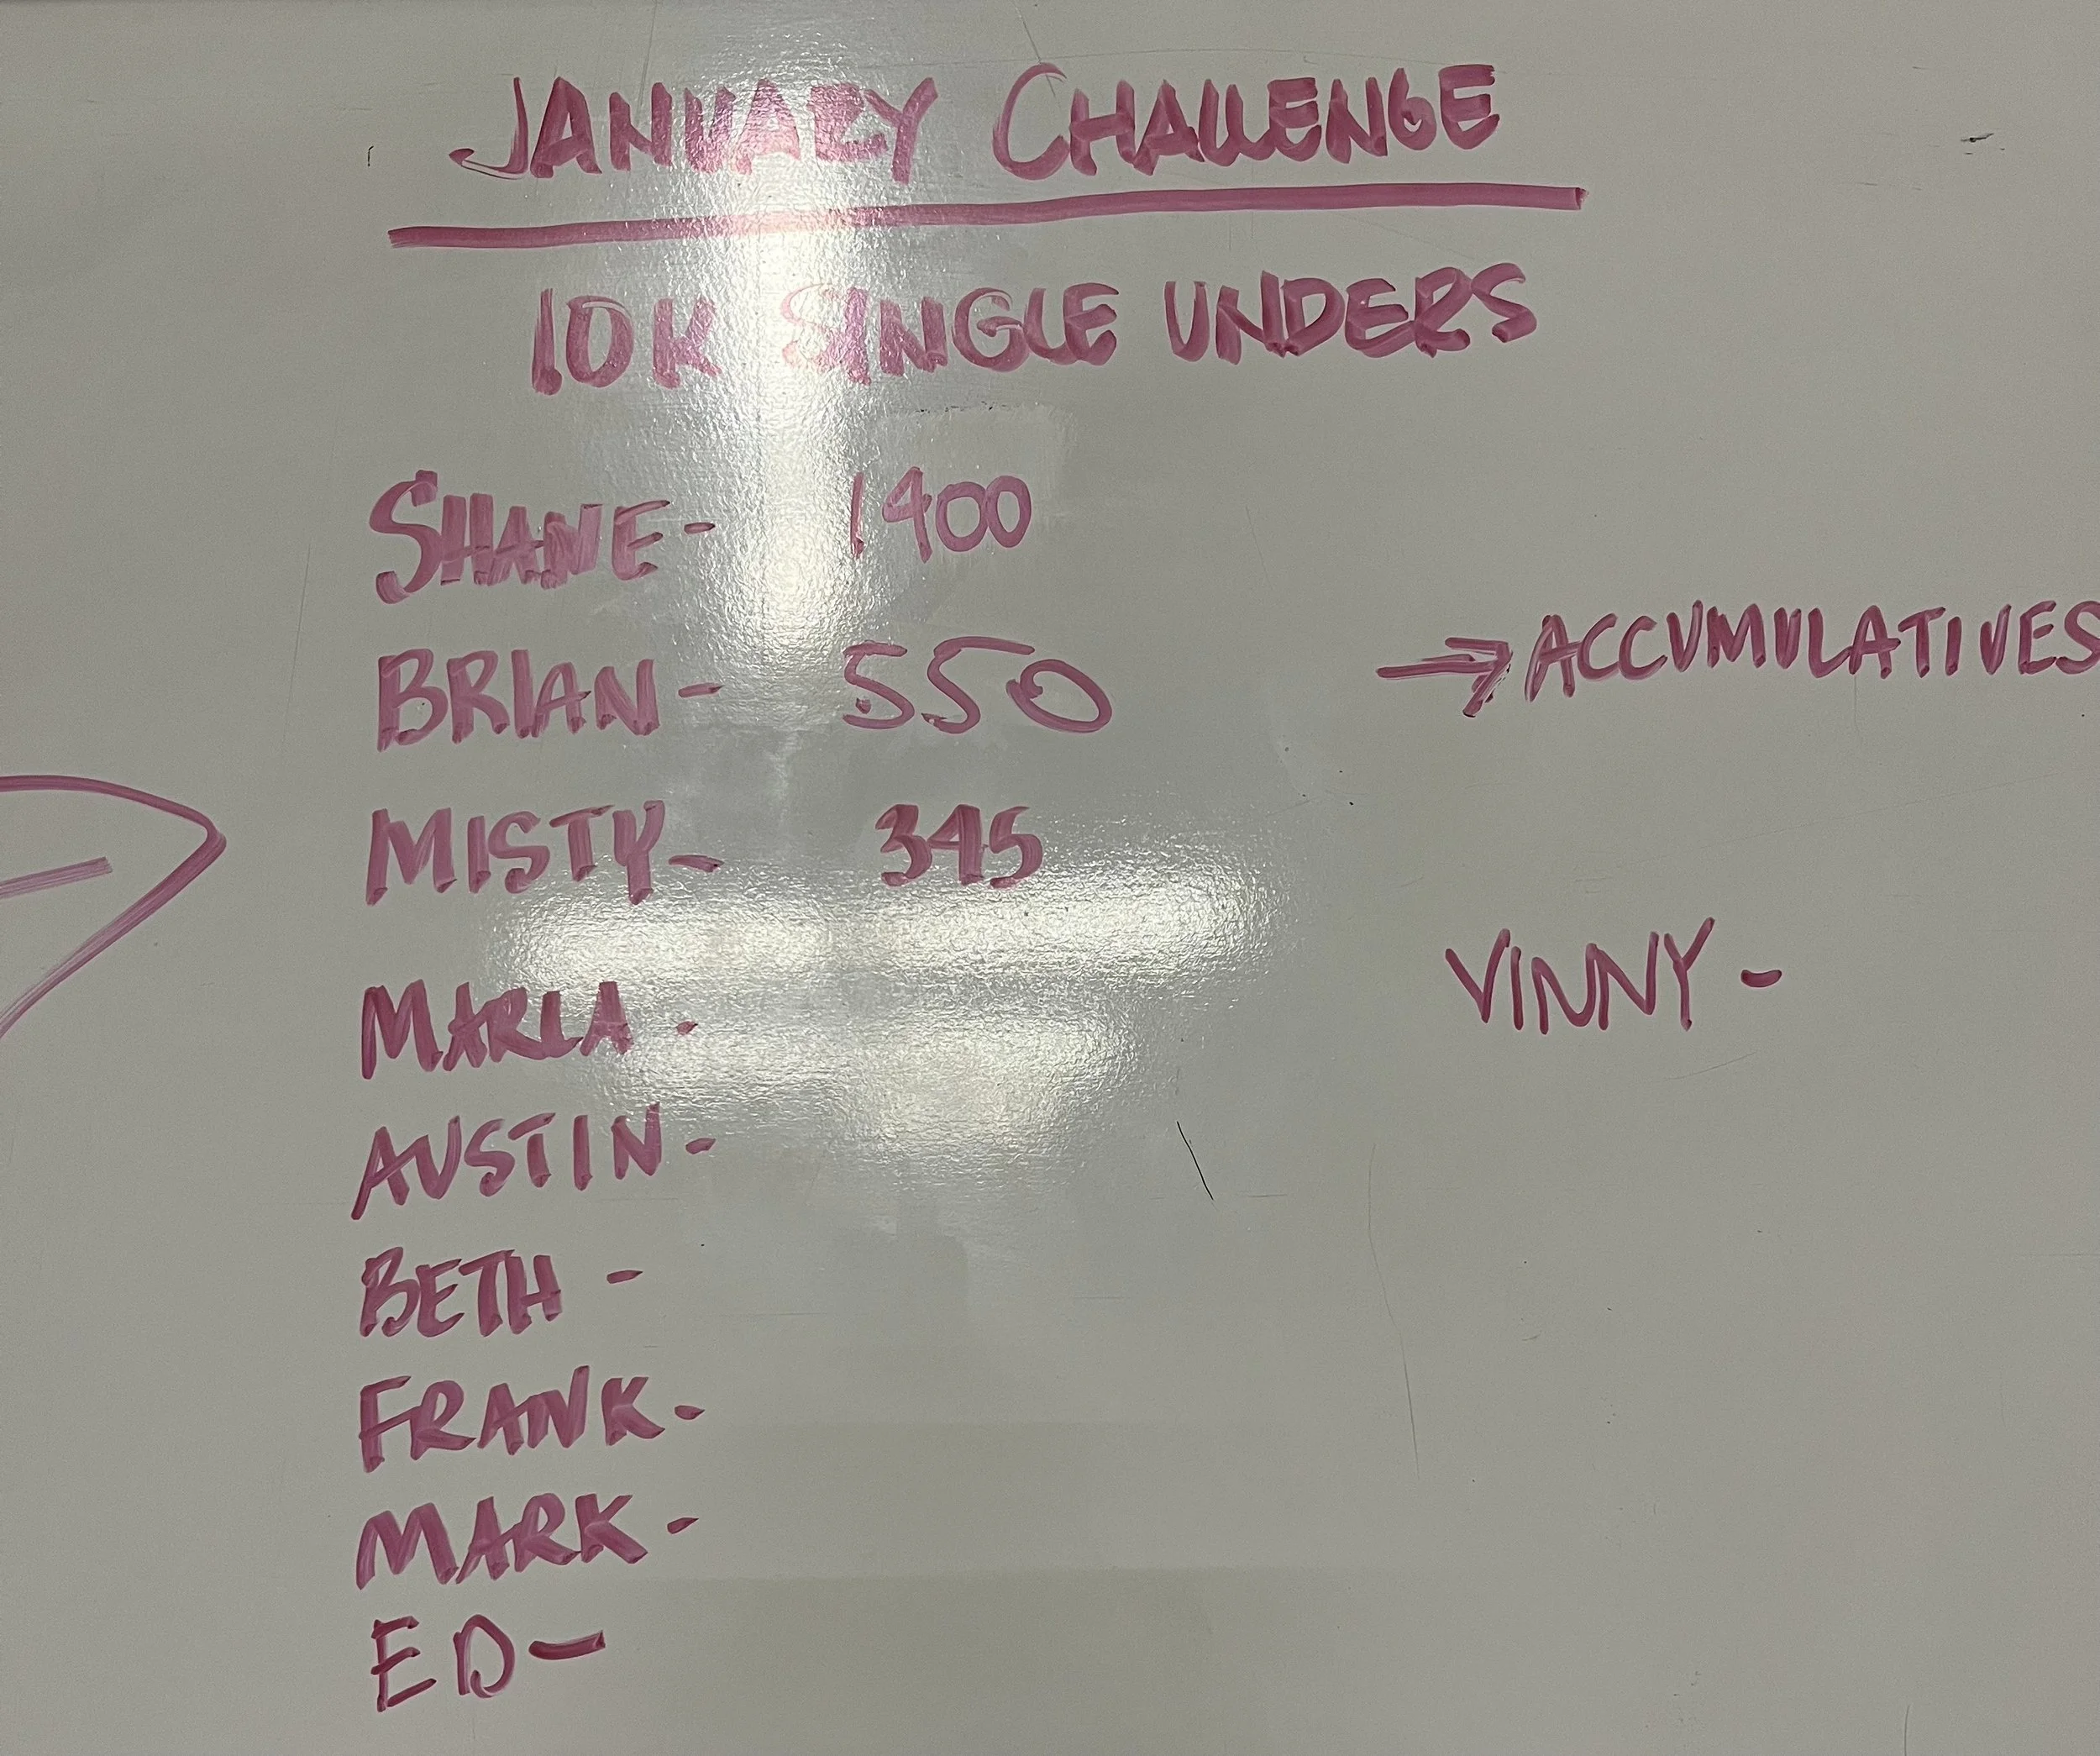 JANUARY CHALLENGE
10K SINGLE UNDERS
SHANE- 1400
BRIAN- 550
→ACCUMULATIVES
MISTY- 345
MARLA-
VINNY-
AUSTIN-
BETH-
FRANK-
MARK-
ED-